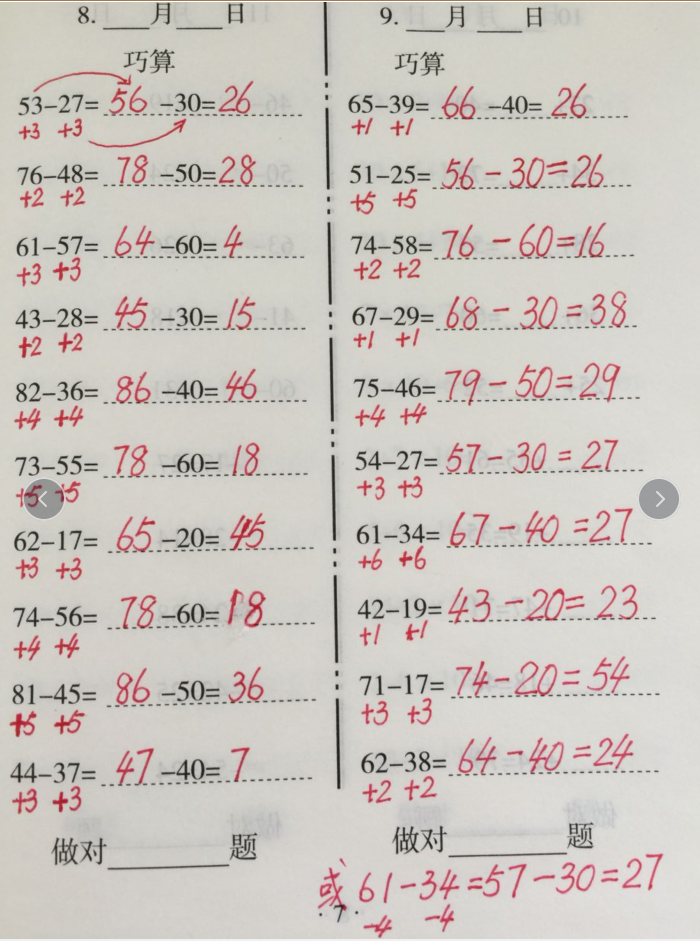 8. ___月___日
巧算
53-27= 56 -30= 26
+3 +3
76-48= 78 -50= 28
+2 +2
61-57= 64 -60= 4
+3 +3
43-28= 45 -30= 15
+2 +2
82-36= 86 -40= 46
+4 +4
73-55= 78 -60= 18
+5 +5
62-17= 65 -20= 45
+3 +3
74-56= 78 -60= 18
+4 +4
81-45= 86 -50= 36
+5 +5
44-37= 47 -40= 7
+3 +3
做对______题
9. ___月___日
巧算
65-39= 66 -40= 26
+1 +1
51-25= 56-30=26
+5 +5
74-58= 76-60=16
+2 +2
67-29= 68-30=38
+1 +1
75-46= 79-50=29
+4 +4
54-27= 57-30=27
+3 +3
61-34= 67-40=27
+6 +6
42-19= 43-20=23
+1 +1
71-17= 74-20=54
+3 +3
62-38= 64-40=24
+2 +2
做对______题
或 61-34=57-30=27
-4 -4
· 7 ·